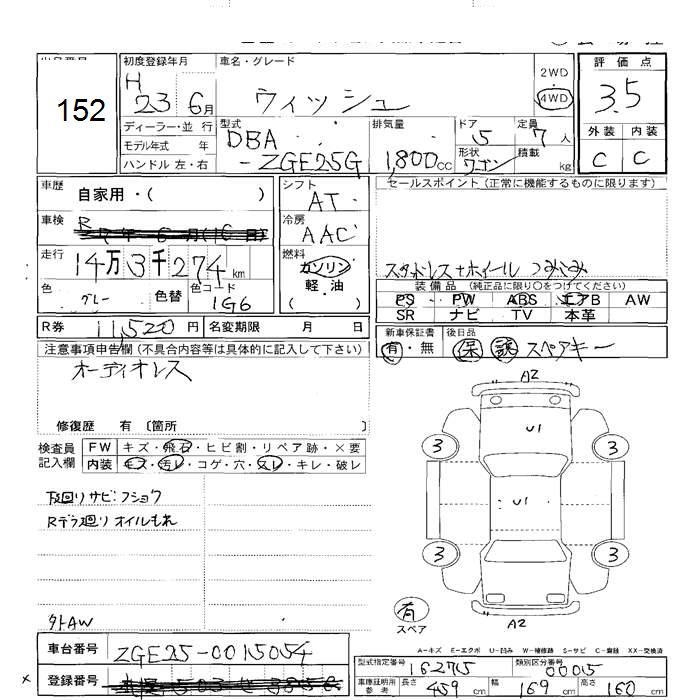 152
初度登録年月 車名・グレード
H 23 6月 ウィッシュ
2WD
4WD
評価点
3.5
外装 内装
C C
ディーラー・並行
モデル年式 年
ハンドル 左・右
型式 DBA -ZGE25G
排気量 1,800cc
ドア 5
定員 7人
形状 ワゴン
積載 kg
車歴 自家用・( )
車検 R
走行 14万3千274km
色 グレー 色替 色コード 1G6
シフト AT
冷房 AAC
燃料 ガソリン
軽・油
( )
セールスポイント(正常に機能するものに限ります)
スタッドレス+ホイール つみこみ
装備品(純正品に限り○をつけてください)
PS PW ABS エアB AW
SR ナビ TV 本革
R券 11,520円 名変期限 月 日
新車保証書 有・無
後日品 保 説 スペアキー
注意事項申告欄(不具合内容等は具体的に記入して下さい)
オーディオレス
修復歴 有 〔箇所 〕
検査員記入欄
FW キズ・飛石・ヒビ割・リペア跡・×要
内装 キズ・汚レ・コゲ・穴・スレ・キレ・破レ
下回りサビ:フショク
Rデフ廻りオイルもれ
外AW
A2
U1
3 3
U1
3 3
有
スペア
A2
A-キズ E-エクボ U-凹み W-補修跡 S-サビ C-腐蝕 XX-交換済
車台番号 ZGE25-0015054
登録番号
型式指定番号 16275 類別区分番号 0005
車庫証明用参考 長さ 459cm 幅 169cm 高さ 160cm